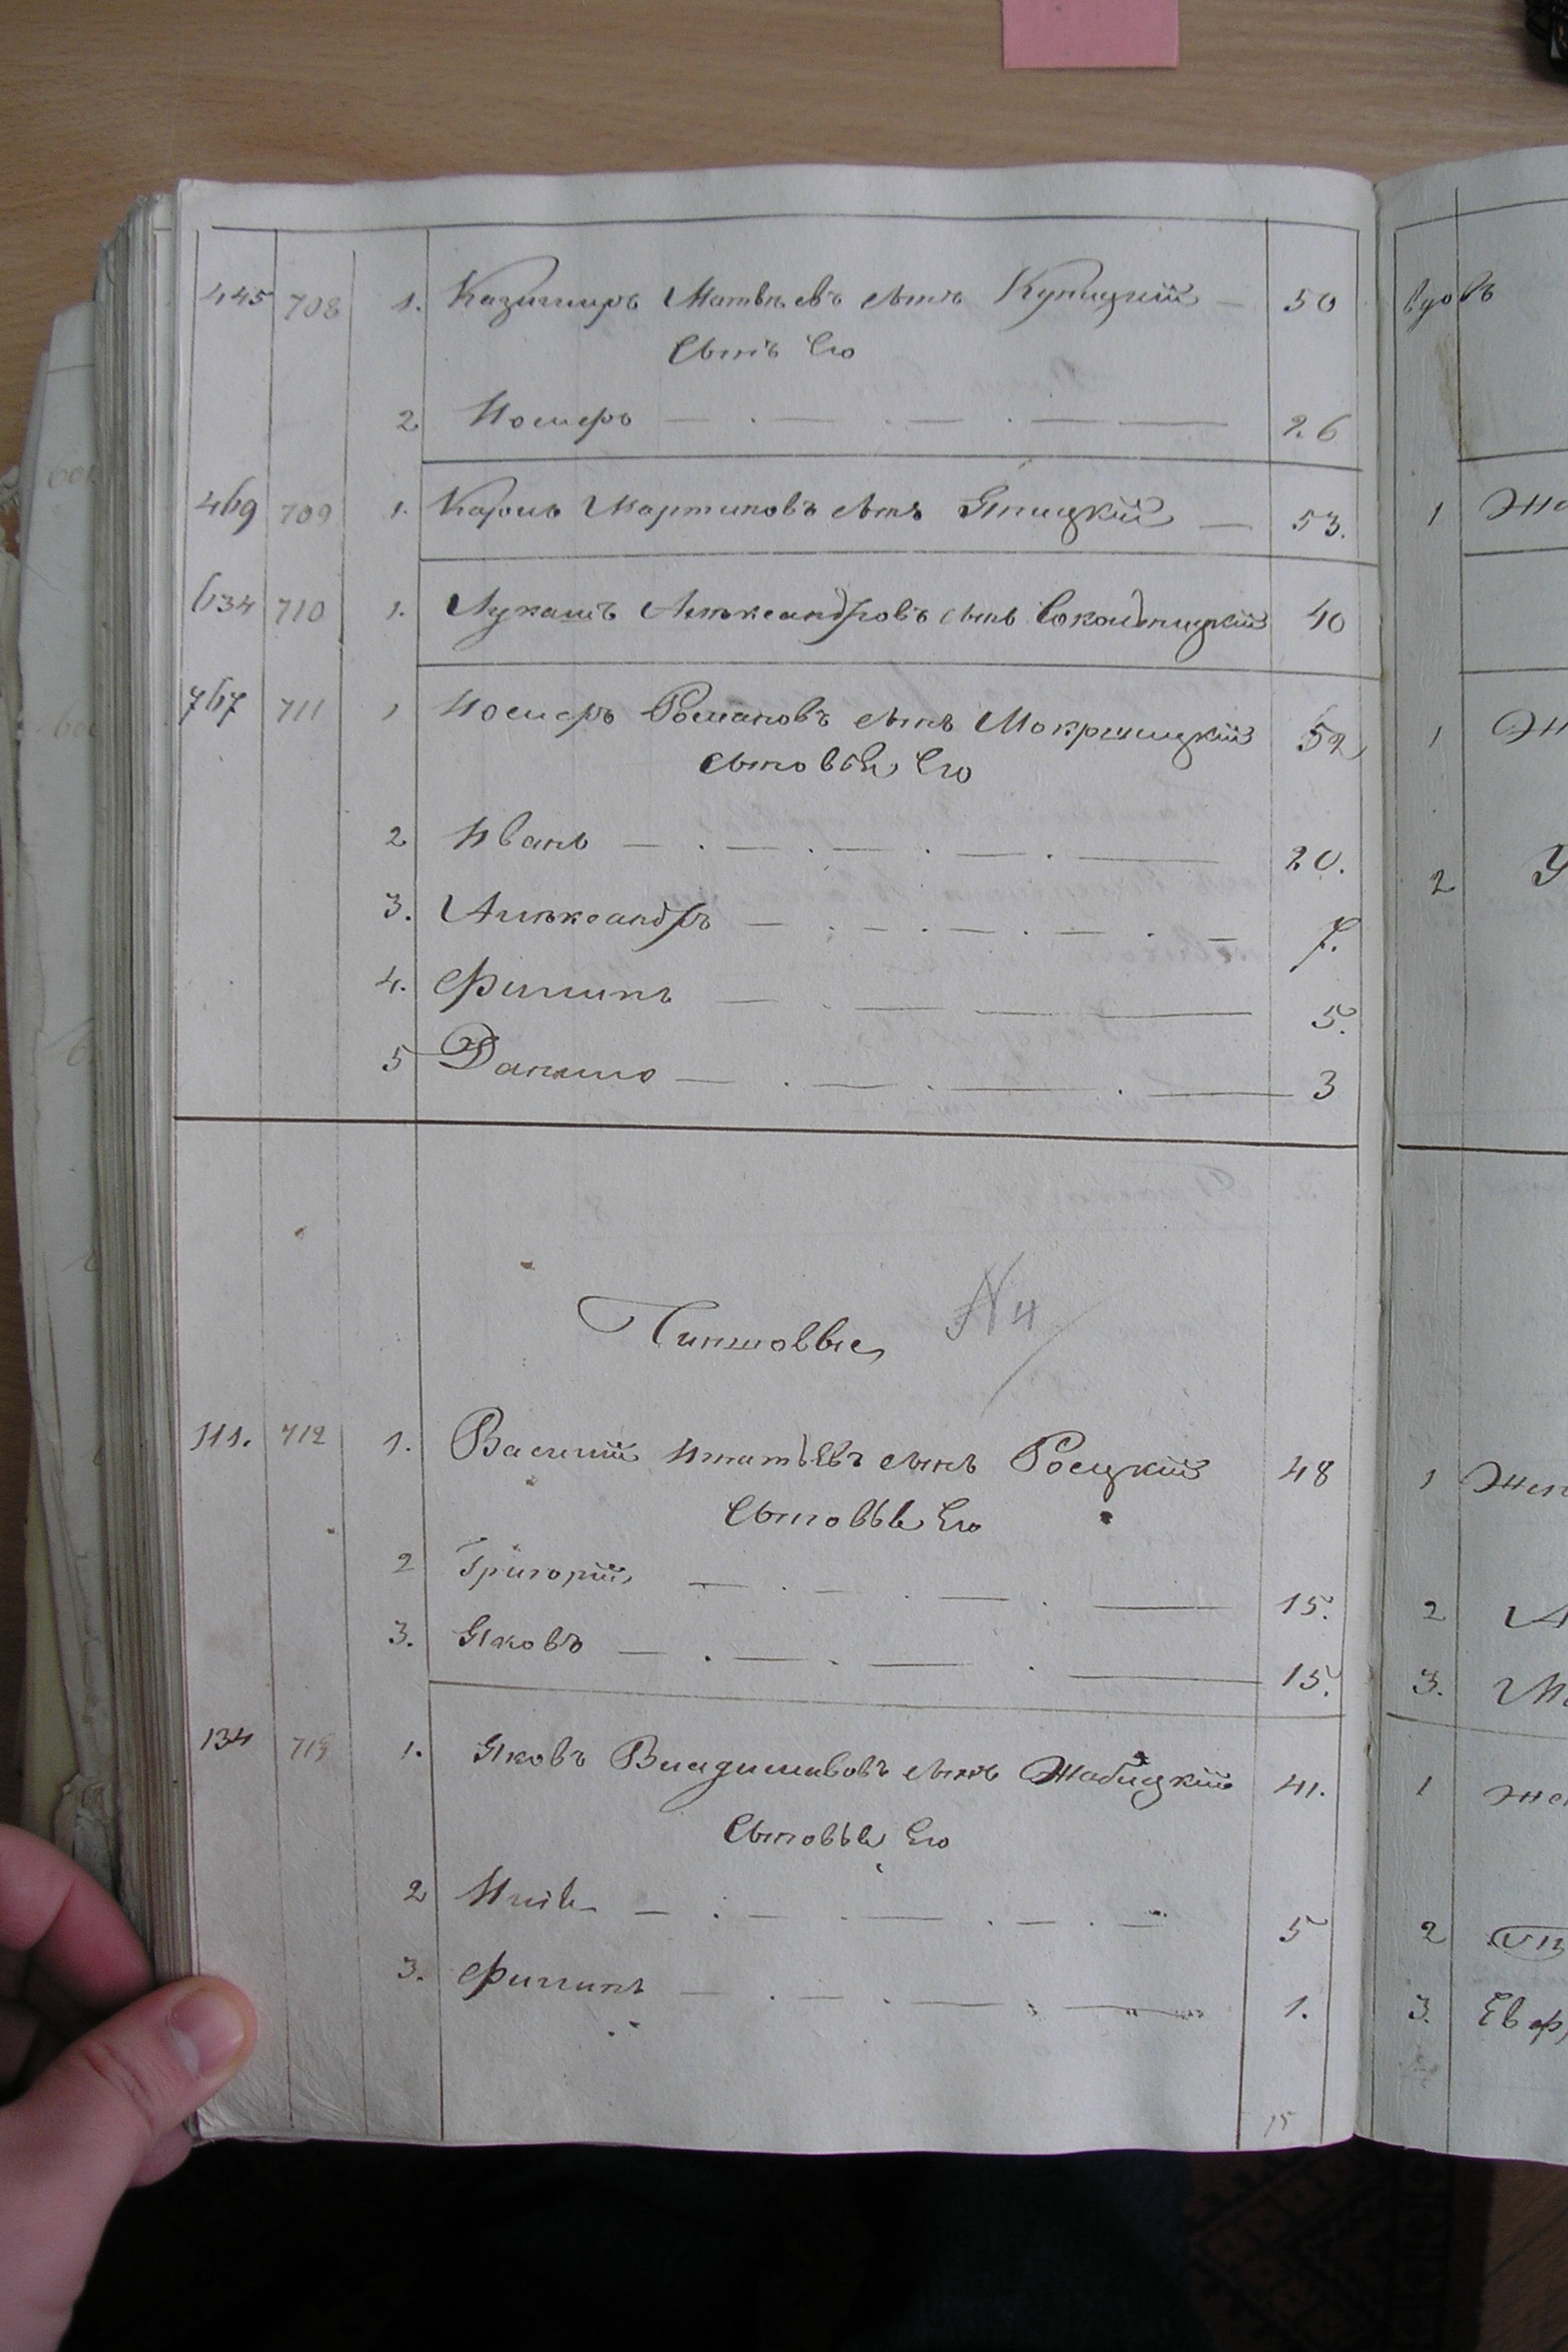 445 708 1. Казимиръ Матвѣевъ сынъ Купицкій — 50
Сынъ Его
2 Іосифъ — 26
469 709 1. Кароль Мартиновъ сынъ Япицкій — 53.
634 710 1. Лукашъ Александровъ сынъ 40
767 711 1 Іосифъ Романовъ сынъ Мокржицкій 52
Сыновья Его
2 Иванъ — 20.
3. Александръ — 7.
4. Филипъ — 5.
5 Данило — 3
Чиншовые N 4
111. 712 1. Василій Игнатьевъ сынъ Росицкій 48
Сыновья Его
2 Григорій — 15.
3. Яковъ — 15.
134 713 1. Яковъ сынъ Жабицкій 41.
Сыновья Его
2 Илья — 5
3. Филипъ — 1.
15
вдовъ
1
1
2
1
2
3.
1
2
3. Евф